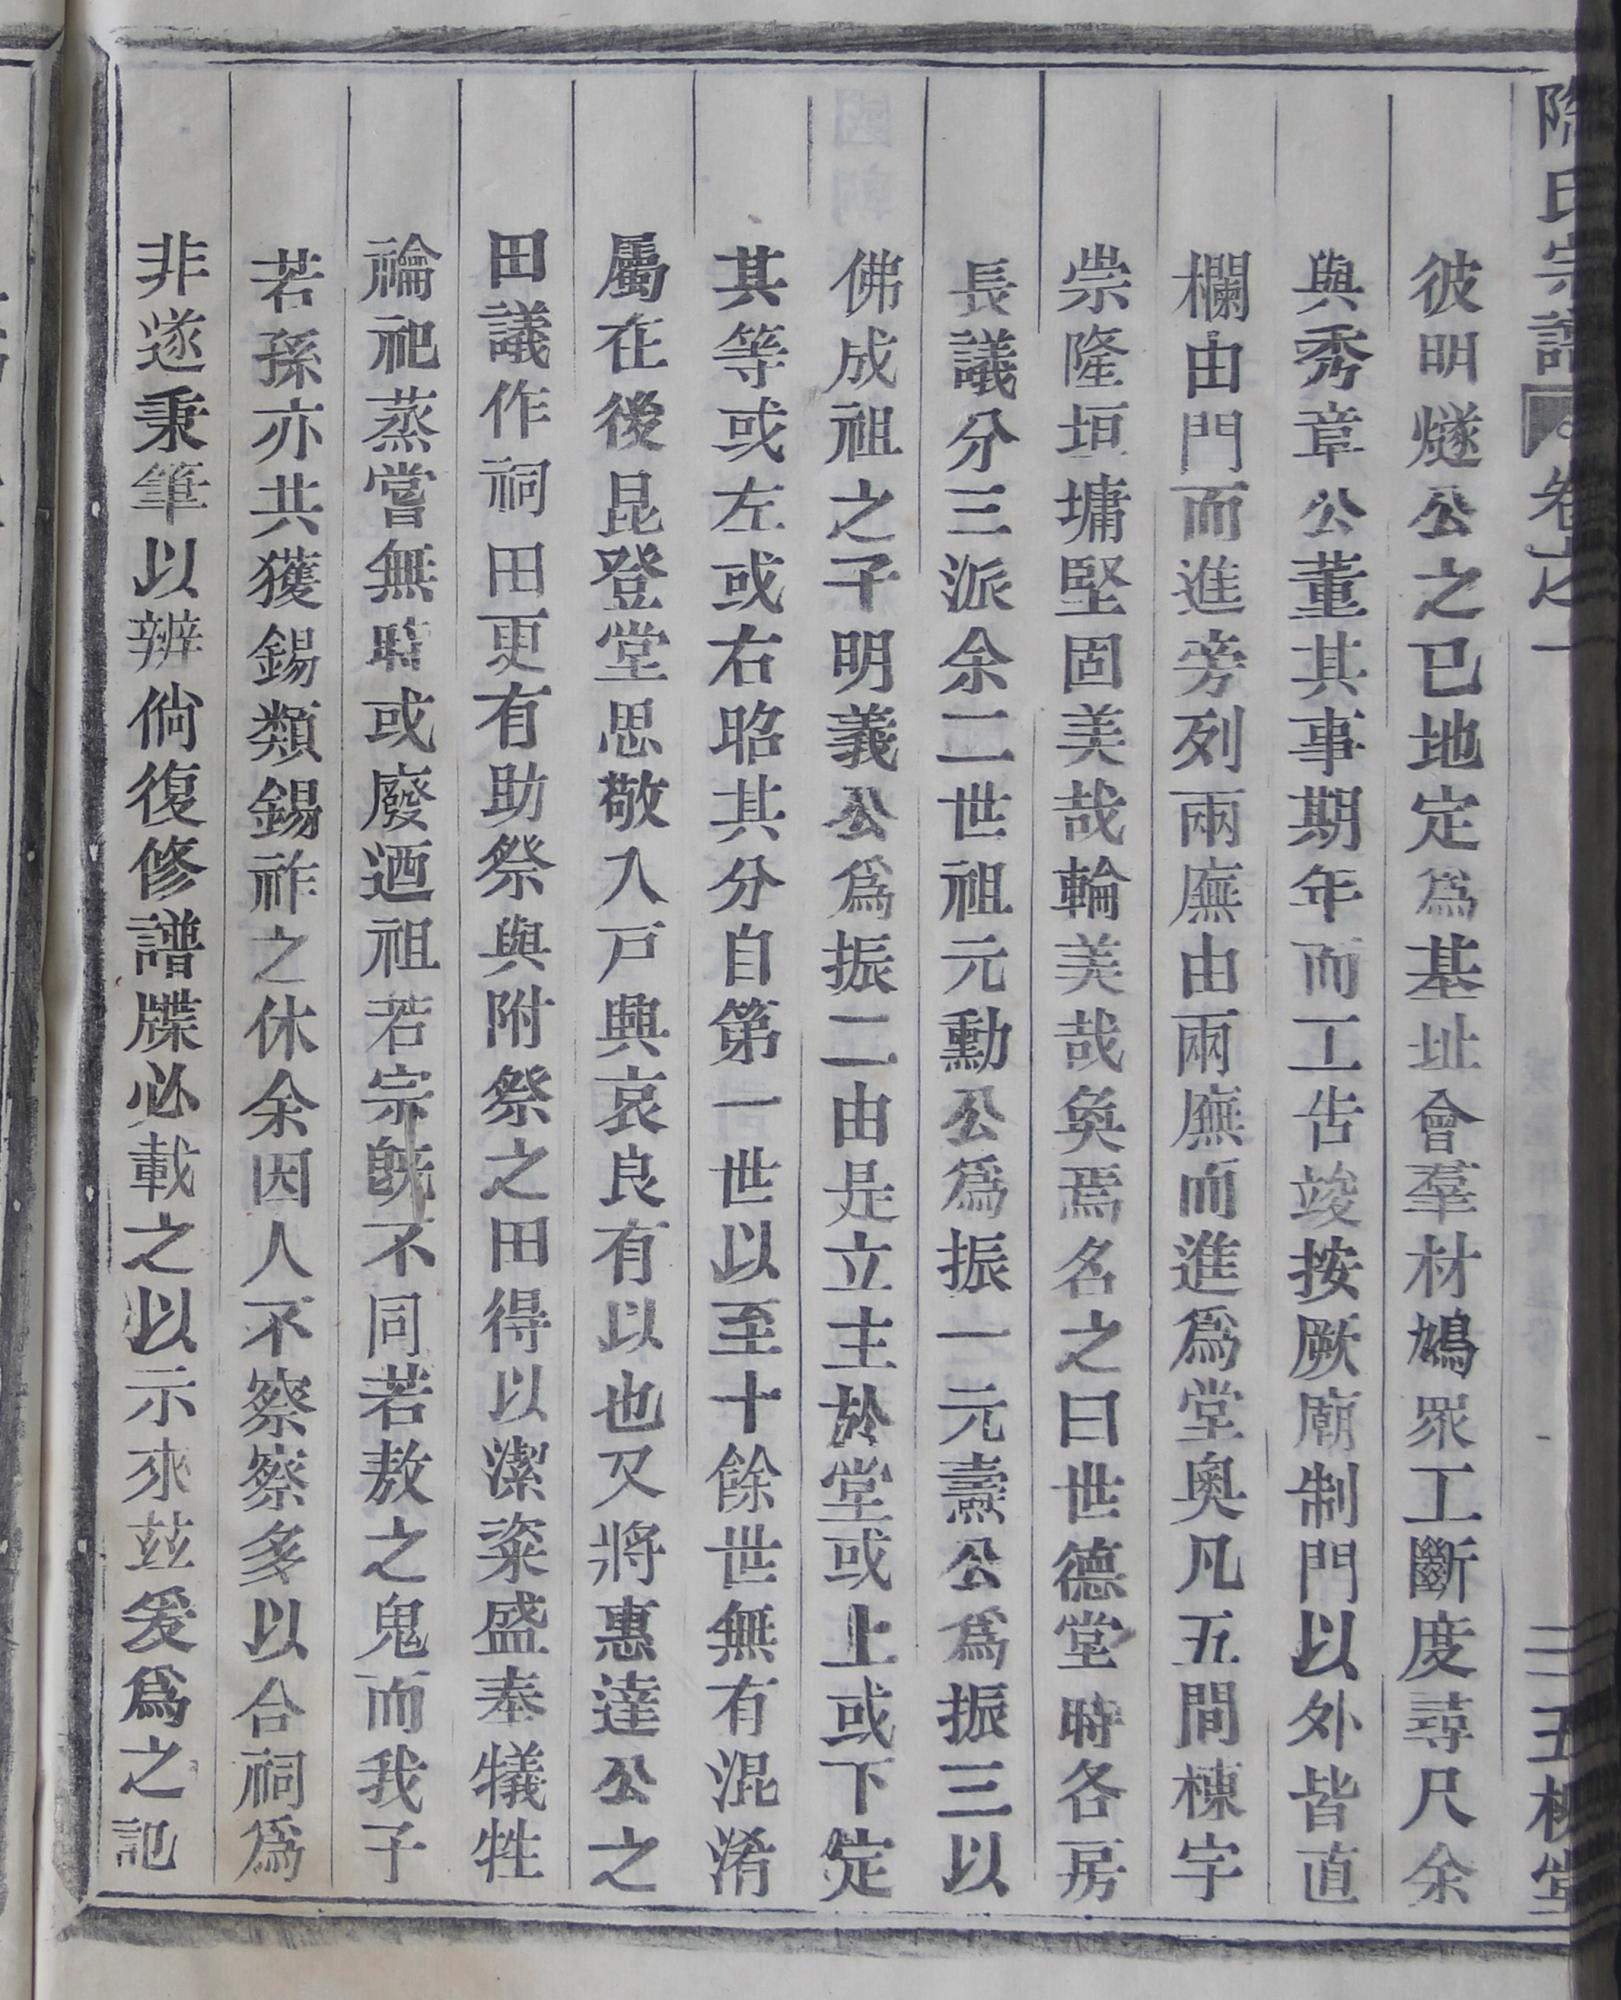 陶氏宗譜 卷之一 二 五柳堂
彼明燧公之已地定爲基址會羣材鳩眾工斷度尋尺余
與秀章公董其事期年而工告竣按厥廟制門以外皆直
欄由門而進旁列兩廡由兩廡而進爲堂奧凡五間棟宇
崇隆垣墉堅固美哉輪美哉奐焉名之曰世德堂時各房
長議分三派余二世祖元勳公爲振一元壽公爲振三以
佛成祖之子明義公爲振二由是立主於堂或上或下定
其等或左或右昭其分自第一世以至十餘世無有混淆
屬在後昆登堂思敬入戸興哀良有以也又將惠達公之
田議作祠田更有助祭與附祭之田得以潔粢盛奉犧牲
禴祀蒸嘗無時或廢迺祖若宗旣不同若敖之鬼而我子
若孫亦共獲錫類錫祚之休余因人不察察多以合祠爲
非遂秉筆以辨倘復修譜牒必載之以示來茲爰爲之記